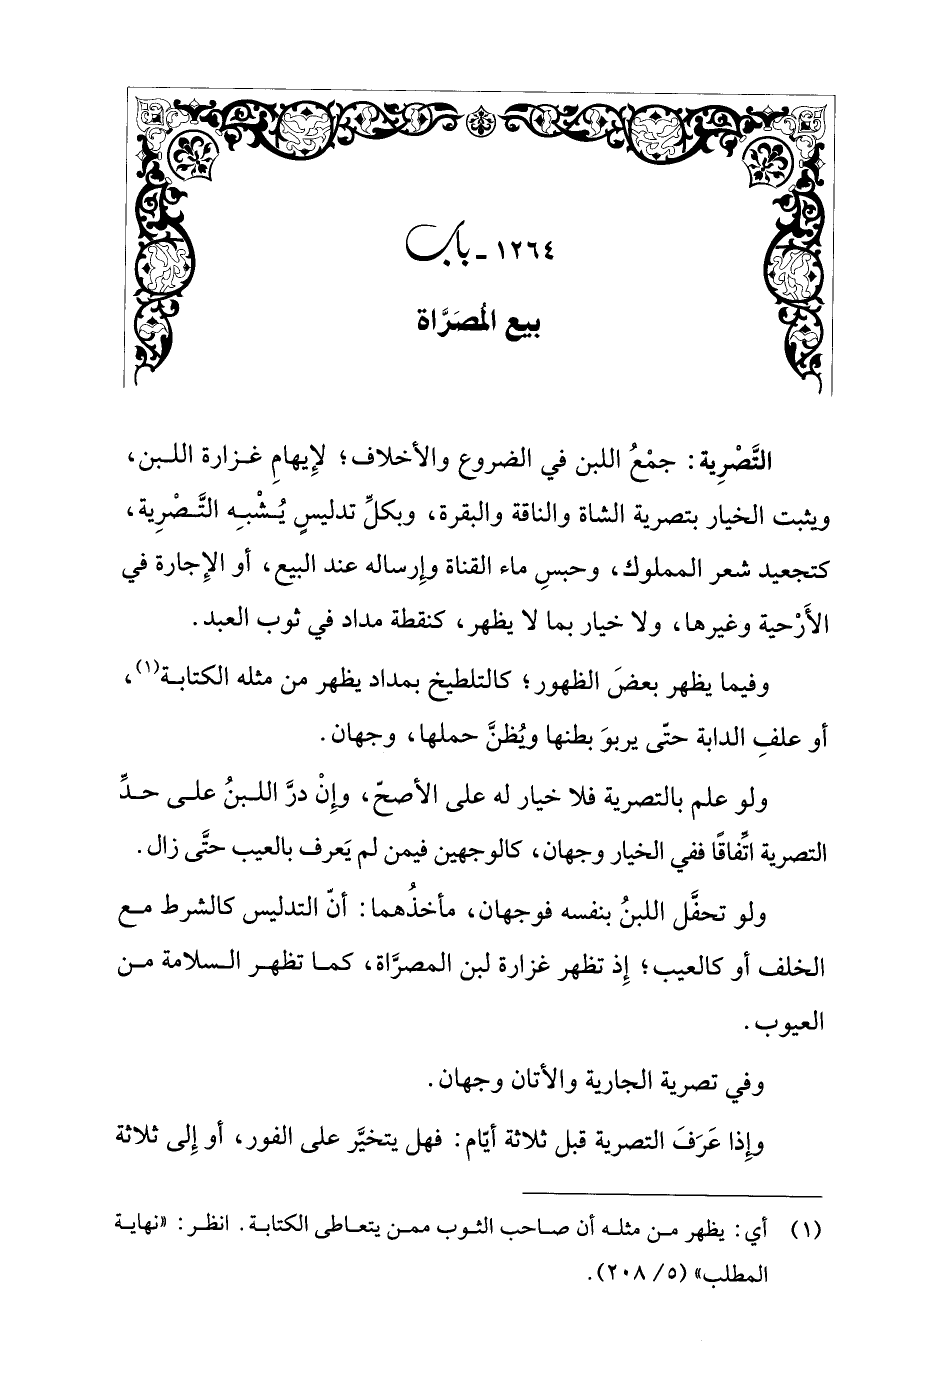 ١٢٦٤ - باب
بيع المُصَرَّاة
التَّصْرِية: جمْعُ اللبن في الضروع والأخلاف؛ لإيهامِ غزارة اللبن،
ويثبت الخيار بتصرية الشاة والناقة والبقرة، وبكلِّ تدليسٍ يُشْبِه التَّصْرِية،
كتجعيد شعر المملوك، وحبسِ ماء القناة وإرساله عند البيع، أو الإجارة في
الأَرْحية وغيرها، ولا خيار بما لا يظهر، كنقطة مداد في ثوب العبد.
وفيما يظهر بعضَ الظهور؛ كالتلطيخ بمداد يظهر من مثله الكتابة(١)،
أو علفِ الدابة حتّى يربوَ بطنها ويُظنَّ حملها، وجهان.
ولو علم بالتصرية فلا خيار له على الأصحّ، وإنْ درَّ اللبنُ على حدِّ
التصرية اتِّفاقًا ففي الخيار وجهان، كالوجهين فيمن لم يَعرف بالعيب حتَّى زال.
ولو تحفَّل اللبنُ بنفسه فوجهان، مأخذُهما: أنّ التدليس كالشرط مع
الخلف أو كالعيب؛ إذ تظهر غزارة لبن المصرَّاة، كما تظهر السلامة من
العيوب.
وفي تصرية الجارية والأتان وجهان.
وإذا عَرَفَ التصرية قبل ثلاثة أيّام: فهل يتخيَّر على الفور، أو إلى ثلاثة
(١) أي: يظهر من مثله أن صاحب الثوب ممن يتعاطى الكتابة. انظر: «نهاية
المطلب» (٥/ ٢٠٨).